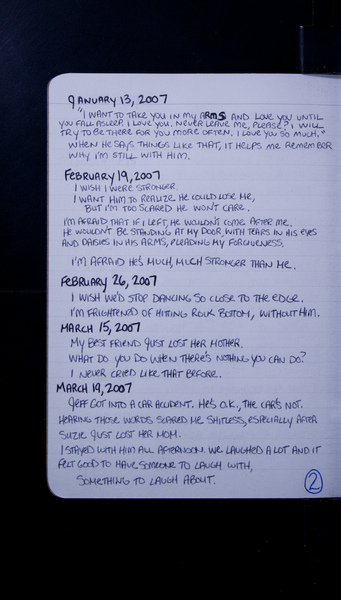 JANUARY 13, 2007
"I WANT TO TAKE YOU IN MY ARMS AND LOVE YOU UNTIL
YOU FALL ASLEEP. I LOVE YOU. NEVER LEAVE ME, PLEASE? I WILL
TRY TO BE THERE FOR YOU MORE OFTEN. I LOVE YOU SO MUCH."
WHEN HE SAYS THINGS LIKE THAT, IT HELPS ME REMEMBER
WHY I'M STILL WITH HIM.
FEBRUARY 19, 2007
I WISH I WERE STRONGER.
I WANT HIM TO REALIZE HE COULD LOSE ME,
BUT I'M TOO SCARED HE WON'T CARE.
I'M AFRAID THAT IF I LEFT, HE WOULDN'T COME AFTER ME.
HE WOULDN'T BE STANDING AT MY DOOR, WITH TEARS IN HIS EYES
AND DAISIES IN HIS ARMS, PLEADING MY FORGIVENESS.
I'M AFRAID HE'S MUCH, MUCH STRONGER THAN ME.
FEBRUARY 26, 2007
I WISH WE'D STOP DANCING SO CLOSE TO THE EDGE.
I'M FRIGHTENED OF HITTING ROCK BOTTOM, WITHOUT HIM.
MARCH 15, 2007
MY BEST FRIEND JUST LOST HER MOTHER.
WHAT DO YOU DO WHEN THERE'S NOTHING YOU CAN DO?
I NEVER CRIED LIKE THAT BEFORE.
MARCH 19, 2007
JEFF GOT INTO A CAR ACCIDENT. HE'S O.K., THE CAR'S NOT.
HEARING THOSE WORDS SCARED ME SHITLESS, ESPECIALLY AFTER
SUZIE JUST LOST HER MOM.
I STAYED WITH HIM ALL AFTERNOON. WE LAUGHED A LOT AND IT
FELT GOOD TO HAVE SOMEONE TO LAUGH WITH,
SOMETHING TO LAUGH ABOUT.
2